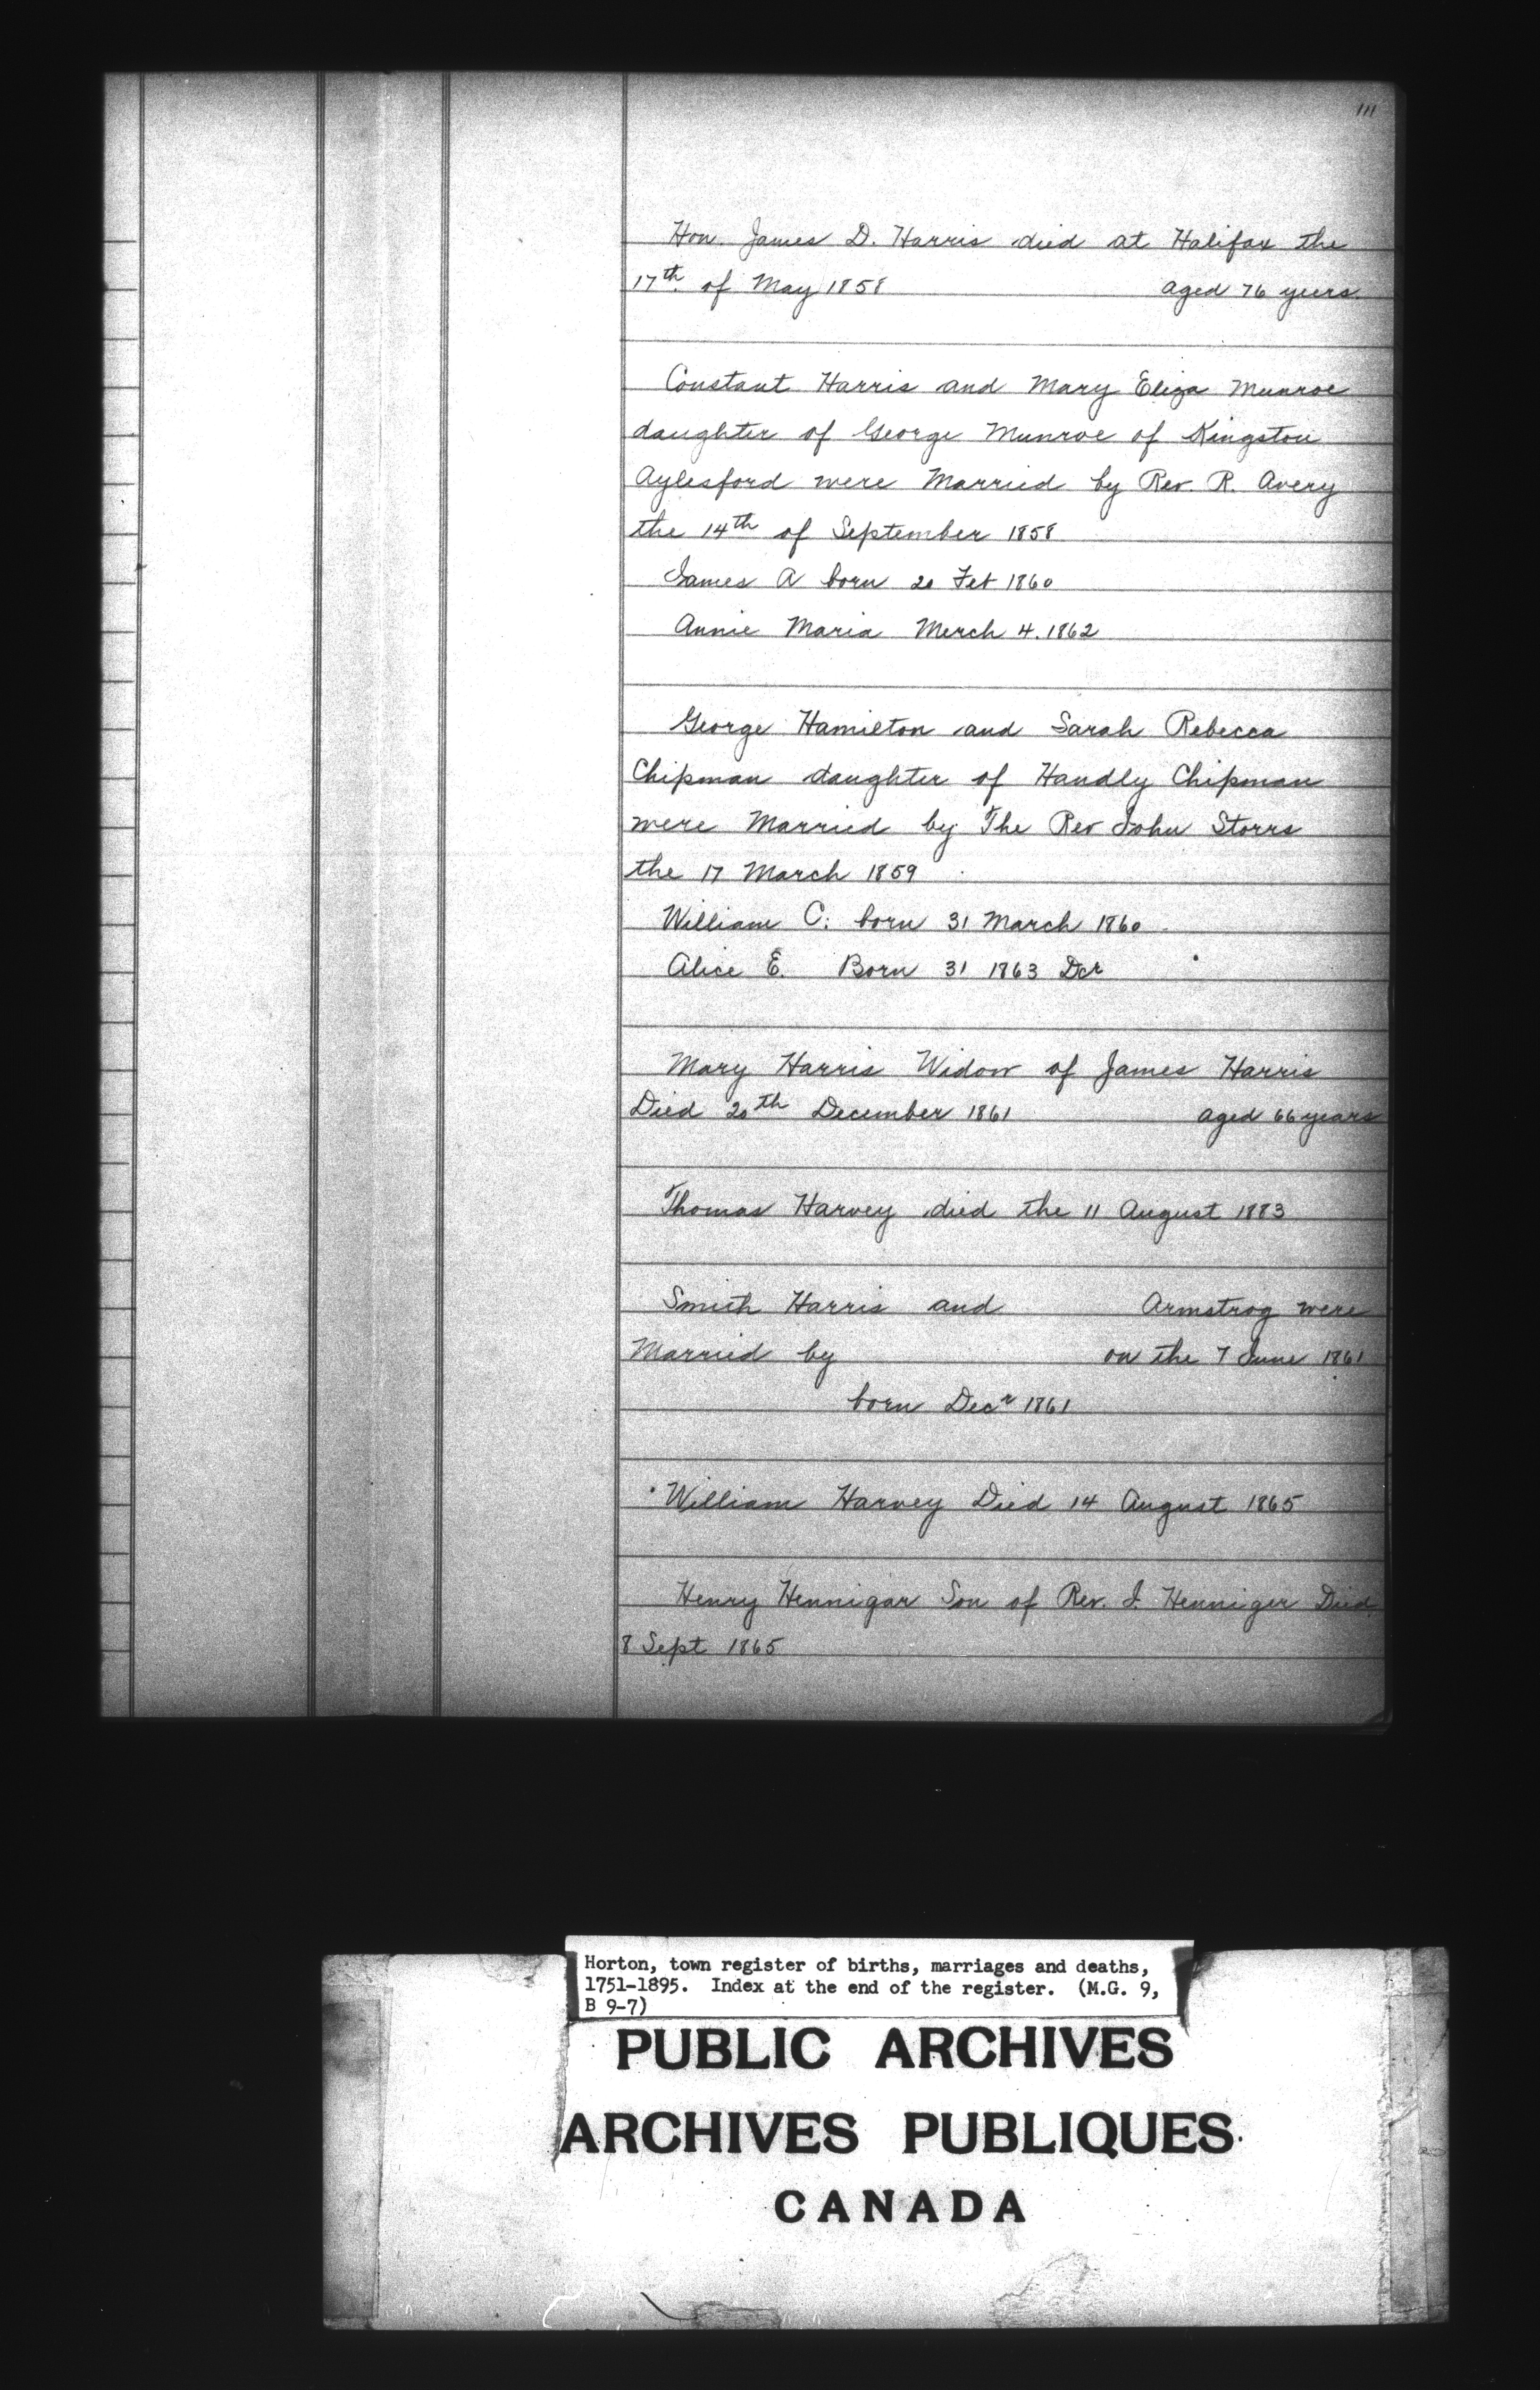 111
Hon. James D. Harris died at Halifax the
17th of May 1858 aged 76 yeers.
Constant Harris and Mary Eliza Munroe
daughter of George Munroe of Kingston
Aylesford were Married by Rev. R. Avery
the 14th of September 1858
James A born 20 Feb 1860
Annie Maria Merch 4. 1862
George Hamilton and Sarah Rebecca
Chipman daughter of Handly Chipman
were Married by The Rev John Storrs
the 17 March 1859
William C. born 31 March 1860
Alice E. Born 31 1863 Dcr
Mary Harris Widow of James Harris
Died 20th December 1861 aged 66 years
Thomas Harvey died the 11 August 1883
Smith Harris and Armstrog were
Married by on the 7 June 1861
born Decr 1861
William Harvey Died 14 August 1865
Henry Hennigar Son of Rev. J. Henniger Died
8 Sept 1865
Horton, town register of births, marriages and deaths,
1751-1895. Index at the end of the register. (M.G. 9,
B 9-7)
PUBLIC ARCHIVES
ARCHIVES PUBLIQUES
CANADA